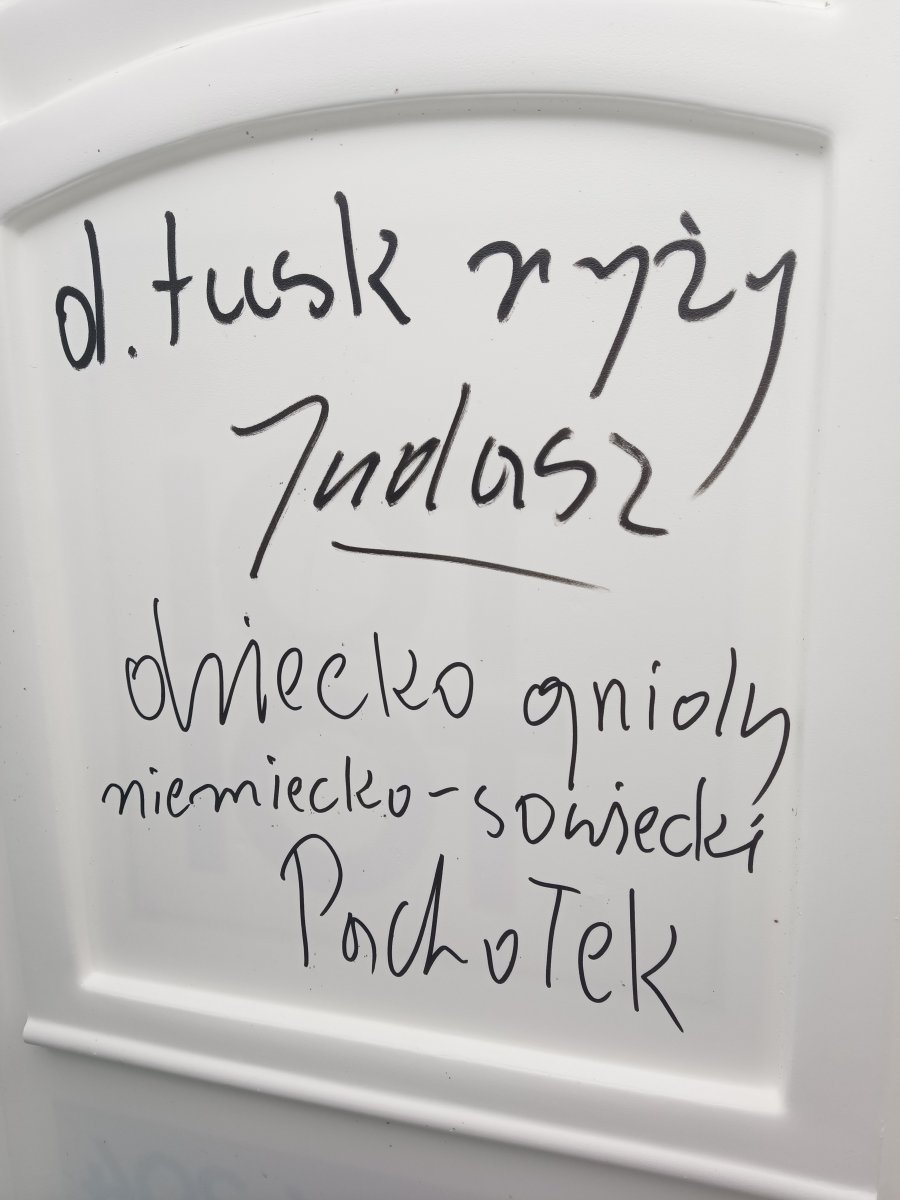 d. tusk ryży
Judasz
dziecko gnioły
niemiecko-sowiecki
PachoTek